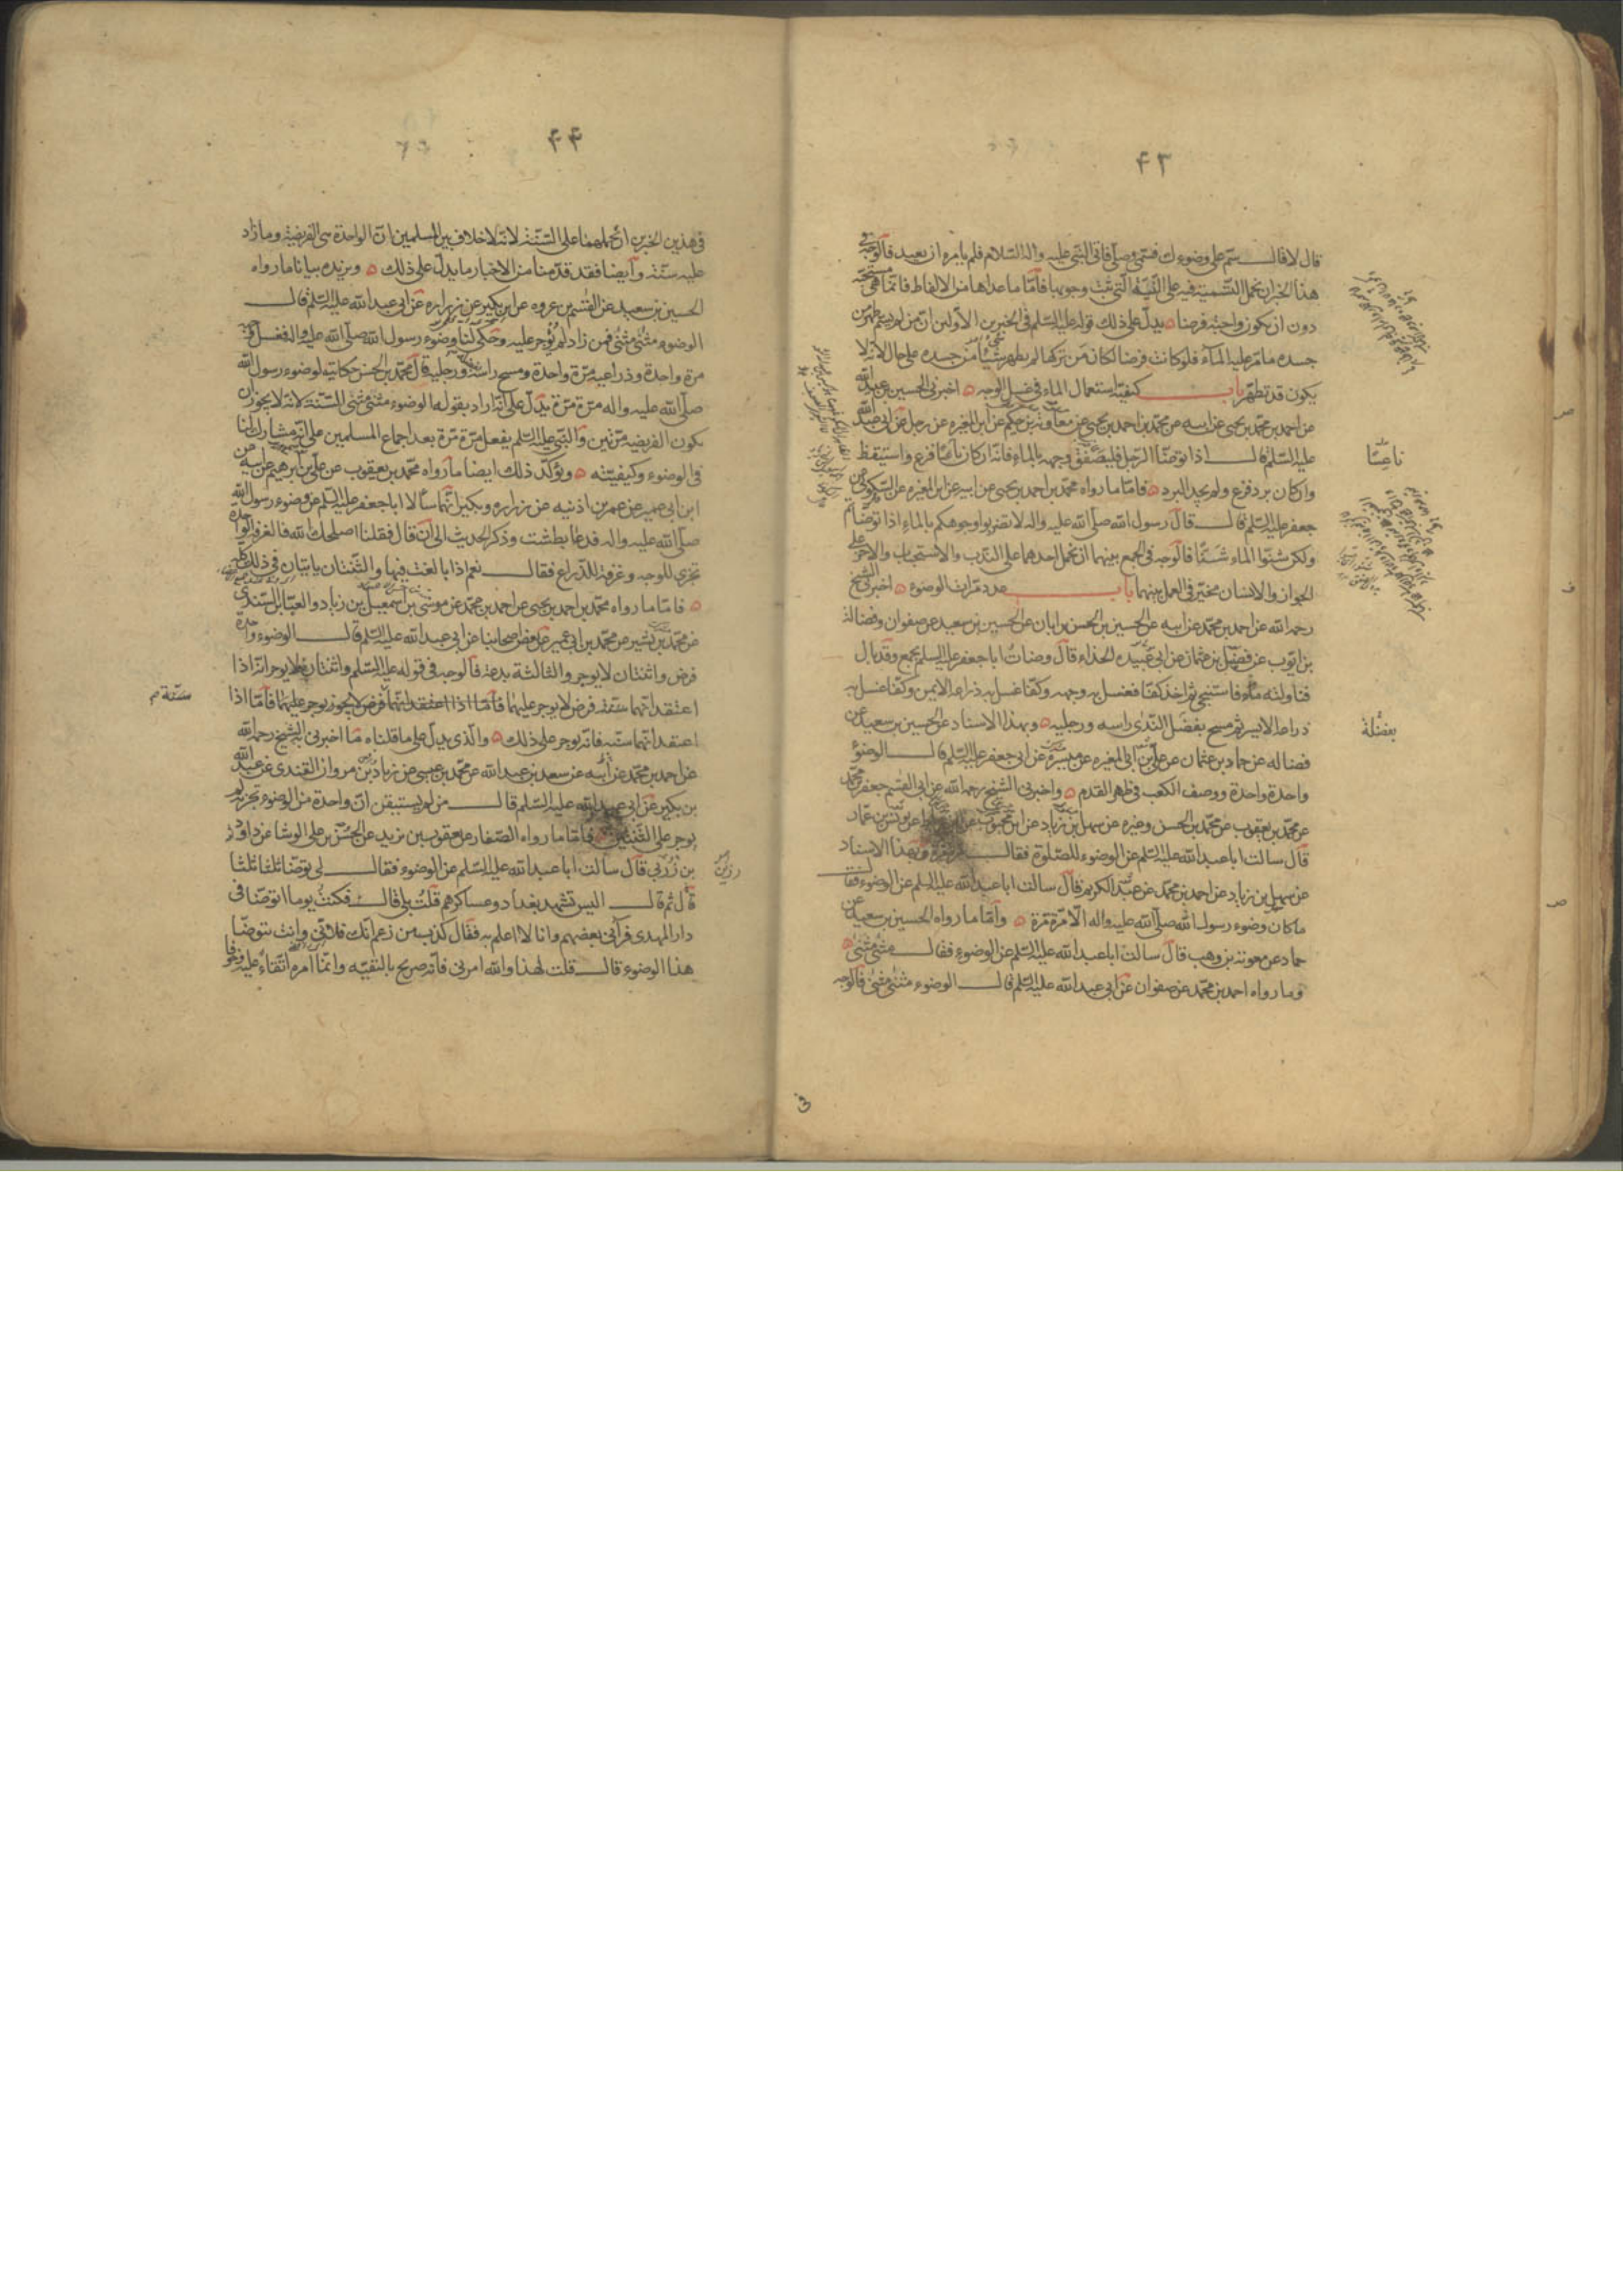 ۴۳
قال لا قال سمّ على وضوءك فسمّى وصلّى فاتى النبى عليه واله السّلام فلم يامره ان يعيد فالوجه فى
هذا الخبر ان نحمل التسمية فيه على النيّة الّتى ثبت وجوبها فامّا ما عداها من الالفاظ فانّما هى مستحبّه
دون ان يكون واجبة فرضا يدلّ على ذلك قوله عليه السّلم فى الخبرين الاولين ان من لم يسم طهر من
جسده ما مرّ عليه الماء فلو كانت فرضا لكان من تركها لم يطهر شىء من جسده على حال لانه لا
يكون قد تطهّر باب كيفيّة استعمال الماء فى غسل الوجه اخبرنى الحسين بن عبيد الله
عن احمد بن محمد بن يحيى عن ابيه عن محمّد بن احمد بن يحيى عن معاوية بن حكيم عن ابن المغيرة عن رجل عن ابى عبد الله
عليه السّلم قال اذا توضّأ الرّجل فليصفق وجهه بالماء فانّه ان كان ناعسًا فزع واستيقظ
ناعِسًا
وان كان برد فزع ولم يجد البرد فامّا ما رواه محمّد بن احمد بن يحيى عن ابيه عن ابن المغيره عن السّكونى عن
جعفر عليه السّلم قال قال رسول الله صلّى الله عليه واله لا تضربوا وجوهكم بالماء اذا توضّأتم
ولكن شنّوا الماء شَنًّا فالوجه فى الجمع بينهما ان نحمل احدهما على الندب والاستحباب والاخر على
الجواز والانسان مخيّر فى العمل بينهما باب عدد مرّات الوضوء اخبرنى الشيخ
رحمه الله عن احمد بن محمّد عن ابيه عن الحسين بن الحسن بن ابان عن الحسين بن سعيد عن صفوان وفضالة
بن ايّوب عن فضيل بن عثمان عن ابى عبيده الحذاء قال وضات ابا جعفر عليه السلم بجمع وقد بال
فناولته ماء فاستنجى ثم اخذ كفّا فغسل به وجهه وكفّا غسل به ذراعه الايمن وكفّا غسل به
ذراعه الايسر ثم مسح بفضل النّدى راسه ورجليه وبهذا الاسناد عن الحسين بن سعيد عن
بفضْلَة
فضاله عن حماد بن عثمان عن على بن ابى المغيره عن ميسرة عن ابى جعفر عليه السّلم قال الوضوء
واحدة واحدة ووصف الكعب فى ظهر القدم واخبرنى الشيخ رحمه الله عن ابى القسم جعفر بن محمد
عن محمّد بن يعقوب عن محمّد بن الحسن وغيره عن سهل بن زياد عن ابن محبوب عن يونس بن عمّار
قال سالت ابا عبد الله عليه السّلم عن الوضوء للصّلوة فقال مرّة مرّة وبهذا الاسناد
عن سهل بن زياد عن احمد بن محمّد عن عبد الكريم قال سالت ابا عبد الله عليه السلم عن الوضوء فقال
ما كان وضوء رسول الله صلّى الله عليه واله الّا مرّة مرّة وامّا ما رواه الحسين بن سعيد عن
حماد عن معوية بن وهب قال سالت ابا عبد الله عليه السّلم عن الوضوء فقال مثنى مثنى
وما رواه احمد بن محمّد عن صفوان عن ابى عبد الله عليه السّلم قال الوضوء مثنى مثنى فالوجه
فى
۴۴
فى هذين الخبرين ان نحملهما على السّنّة لانه لا خلاف بين المسلمين انّ الواحدة هى الفريضة وما زاد
عليه سنّة وايضا فقد قدّمنا من الاخبار ما يدلّ على ذلك ويزيده بيانا ما رواه
الحسين بن سعيد عن القسم بن عروه عن ابن بكير عن زراره عن ابى عبد الله عليه السّلم قال
الوضوء مثنى مثنى فمن زاد لم يؤجر عليه وحكى لنا وضوء رسول الله صلّى الله عليه واله فغسل وجهه
مرة واحدة وذراعيه مرّة واحدة ومسح راسه ورجليه قال محمّد بن الحسن حكايته لوضوء رسول الله
صلّى الله عليه واله مرّة مرّة يدلّ على انه اراد بقوله الوضوء مثنى مثنى السّنّة لانه لا يجوز ان
يكون الفريضه مرّتين والنبى عليه السّلم يفعل مرّة مرّة بعد اجماع المسلمين على انّه مشارك لنا
فى الوضوء وكيفيّته ويؤكّد ذلك ايضا ما رواه محمّد بن يعقوب عن على بن ابرهيم عن ابيه عن
ابن ابى عمير عن عمر بن اذنيه عن زراره وبكير انّهما سالا ابا جعفر عليه السّلم عن وضوء رسول الله
صلّى الله عليه واله فدعا بطشت وذكر الحديث الى ان قال فقلنا اصلحك الله فالغرفة الواحدة
تجزى للوجه وغرفة للذراع فقال نعم اذا بالغت فيها والثّنتان ياتيان فى ذلك كلّه
فامّا ما رواه محمّد بن احمد بن يحيى عن احمد بن محمّد عن موسى بن اسمعيل بن زياد والعبّاس بن السّندى
عن محمّد بن بشير عن محمّد بن ابى عمير عن بعض اصحابنا عن ابى عبد الله عليه السّلم قال الوضوء واحدة
فرض واثنتان لا يوجر والثالثة بدعة فالوجه فى قوله عليه السّلم واثنتان لا يوجر انّه اذا
اعتقد انّهما سنّة فرض لا يوجر عليهما فامّا اذا اعتقد انّهما فرض لا يجوز يوجر عليهما فامّا اذا
سنّة م
اعتقد انّهما سنّه فانّه يوجر على ذلك والّذى يدلّ على ما قلناه ما اخبرنى به الشيخ رحمه الله
عن احمد بن محمّد عن ابيه عن سعد بن عبد الله عن محمّد بن عيسى عن زياد بن مروان القندى عن عبد الله
بن بكير عن ابى عبد الله عليه السّلم قال من لم يستيقن انّ واحدة من الوضوء تجزيه لم
يوجر على الثّنتين فامّا ما رواه الصّفار عن يعقوب بن يزيد عن الحسن بن على الوشا عن داود
بن زربى قال سالت ابا عبد الله عليه السّلم عن الوضوء فقال لى توضّأ ثلثا ثلثا
قال ثم قال اليس تشهد بغداد وعساكرهم قلت بلى قال فكنت يوما اتوضّا فى
دار المهدى فرآنى بعضهم وانا لا اعلم به فقال كذب من زعم انّك فلانى وانت تتوضّا
هذا الوضوء قال قلت لهذا والله امرنى فانّه صريح بالتقيّه وانّما امره اتّقاءً عليه وخوفا